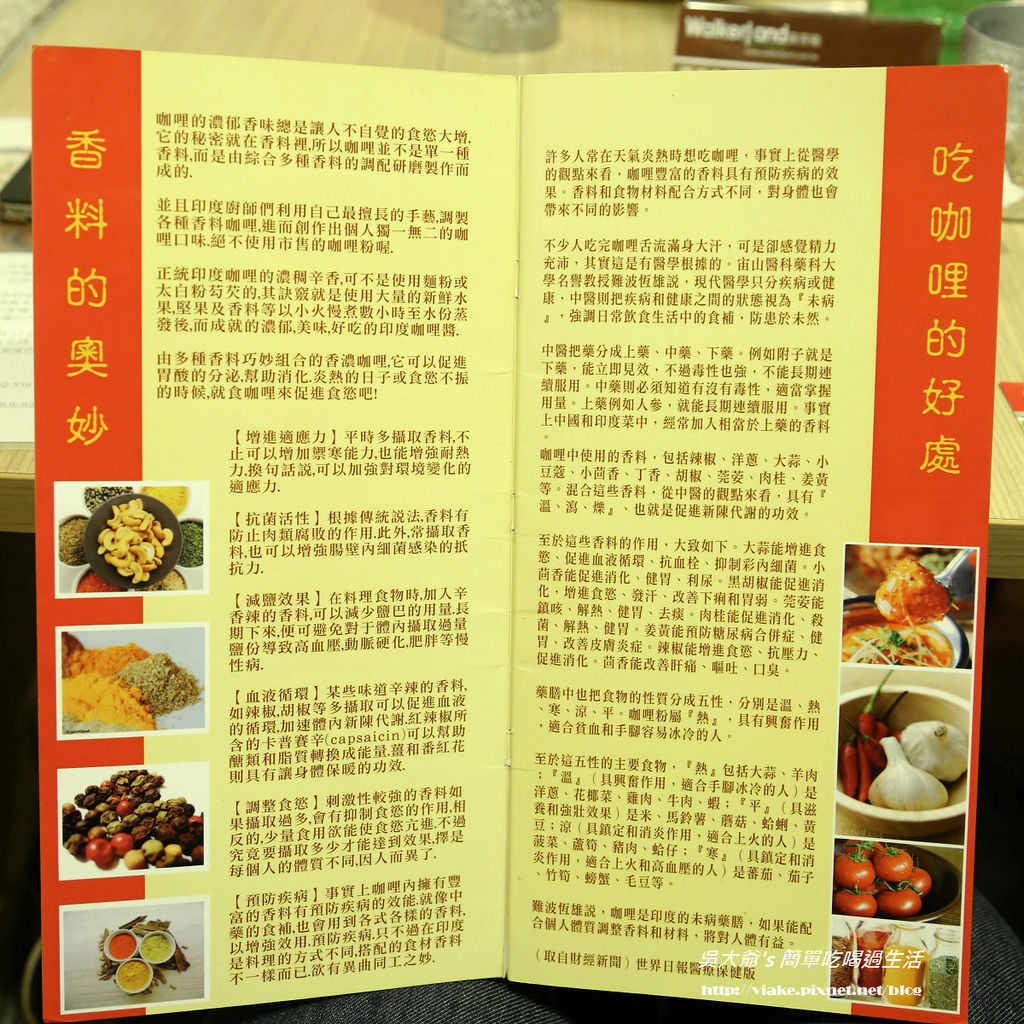 Walkerland
香料的奧妙
咖哩的濃郁香味總是讓人不自覺的食慾大增,
它的秘密就在香料裡,所以咖哩並不是單一種
香料,而是由綜合多種香料的調配研磨製作而
成的.
並且印度廚師們利用自己最擅長的手藝,調製
各種香料咖哩,進而創作出個人獨一無二的咖
哩口味,絕不使用市售的咖哩粉喔.
正統印度咖哩的濃稠辛香,可不是使用麵粉或
太白粉芶芡的,其訣竅就是使用大量的新鮮水
果,堅果及香料等以小火慢煮數小時至水份蒸
發後,而成就的濃郁,美味,好吃的印度咖哩醬.
由多種香料巧妙組合的香濃咖哩,它可以促進
胃酸的分泌,幫助消化,炎熱的日子或食慾不振
的時候,就食咖哩來促進食慾吧!
【增進適應力】平時多攝取香料,不
止可以增加禦寒能力,也能增強耐熱
力,換句話說,可以加強對環境變化的
適應力.
【抗菌活性】根據傳統說法,香料有
防止肉類腐敗的作用.此外,常攝取香
料,也可以增強腸壁內細菌感染的抵
抗力.
【減鹽效果】在料理食物時,加入辛
香辣的香料,可以減少鹽巴的用量,長
期下來,便可避免對于體內攝取過量
鹽份導致高血壓,動脈硬化,肥胖等慢
性病.
【血液循環】某些味道辛辣的香料,
如辣椒,胡椒等多攝取可以促進血液
的循環,加速體內新陳代謝,紅辣椒所
含的卡普賽辛(capsaicin)可以幫助
醣類和脂質轉換成能量,薑和番紅花
則具有讓身體保暖的功效.
【調整食慾】刺激性較強的香料如
果攝取過多,會有抑制食慾的作用,相
反的,少量食用欲能使食慾亢進,不過
究竟要攝取多少才能達到效果,擇是
每個人的體質不同,因人而異了.
【預防疾病】事實上咖哩內擁有豐
富的香料有預防疾病的效能.就像中
藥的食補,也會用到各式各樣的香料,
以增強效用,預防疾病,只不過在印度
是料理的方式不同,搭配的食材香料
不一樣而已,欲有異曲同工之妙.
吃咖哩的好處
許多人常在天氣炎熱時想吃咖哩，事實上從醫學
的觀點來看，咖哩豐富的香料具有預防疾病的效
果。香料和食物材料配合方式不同，對身體也會
帶來不同的影響。
不少人吃完咖哩舌流滿身大汗，可是卻感覺精力
充沛，其實這是有醫學根據的。宙山醫科藥科大
學名譽教授難波恆雄說，現代醫學只分疾病或健
康，中醫則把疾病和健康之間的狀態視為『未病
』，強調日常飲食生活中的食補，防患於未然。
中醫把藥分成上藥、中藥、下藥。例如附子就是
下藥，能立即見效，不過毒性也強，不能長期連
續服用。中藥則必須知道有沒有毒性，適當掌握
用量。上藥例如人參，就能長期連續服用。事實
上中國和印度菜中，經常加入相當於上藥的香料
。
咖哩中使用的香料，包括辣椒、洋蔥、大蒜、小
豆蔻、小茴香、丁香、胡椒、莞荽、肉桂、姜黃
等。混合這些香料，從中醫的觀點來看，具有『
溫、瀉、爍』、也就是促進新陳代謝的功效。
至於這些香料的作用，大致如下。大蒜能增進食
慾、促進血液循環、抗血栓、抑制彩內細菌。小
茴香能促進消化、健胃、利尿。黑胡椒能促進消
化，增進食慾、發汗、改善下痢和胃弱。莞荽能
鎮咳、解熱、健胃、去痰。肉桂能促進消化、殺
菌、解熱、健胃。姜黃能預防糖尿病合併症、健
胃、改善皮膚炎症。辣椒能增進食慾、抗壓力、
促進消化。茴香能改善肝痛、嘔吐、口臭。
藥膳中也把食物的性質分成五性，分別是溫、熱
、寒、涼、平。咖哩粉屬『熱』，具有興奮作用
，適合貧血和手腳容易冰冷的人。
至於這五性的主要食物，『熱』包括大蒜、羊肉
；『溫』（具興奮作用，適合手腳冰冷的人）是
洋蔥、花椰菜、雞肉、牛肉、蝦；『平』（具滋
養和強壯效果）是米、馬鈴薯、蘑菇、蛤蜊、黃
豆；涼（具鎮定和消炎作用，適合上火的人）是
菠菜、蘆筍、豬肉、蛤仔；『寒』（具鎮定和消
炎作用，適合上火和高血壓的人）是蕃茄、茄子
、竹筍、螃蟹、毛豆等。
難波恆雄說，咖哩是印度的未病藥膳，如果能配
合個人體質調整香料和材料，將對人體有益。
（取自財經新聞）世界日報醫療保健版
吳大爺's 簡單吃喝過生活
http://viake.pixnet.net/blog